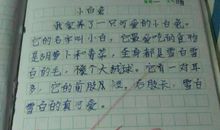 小白兔
我家养了一只可爱的小白兔。
它的名字叫小白，它最爱吃的食物
是胡萝卜和青菜，全身都是雪白雪
白的毛，像个大绒球。它有一对耳
多，它的前肢短，后肢长，雪白
雪白的真可爱。